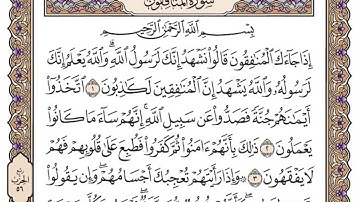 سورة المنافقون
بِسْمِ اللَّهِ الرَّحْمَٰنِ الرَّحِيمِ
إِذَا جَاءَكَ الْمُنَافِقُونَ قَالُوا نَشْهَدُ إِنَّكَ لَرَسُولُ اللَّهِ ۗ وَاللَّهُ يَعْلَمُ إِنَّكَ
لَرَسُولُهُ وَاللَّهُ يَشْهَدُ إِنَّ الْمُنَافِقِينَ لَكَاذِبُونَ ١ اتَّخَذُوا
أَيْمَانَهُمْ جُنَّةً فَصَدُّوا عَن سَبِيلِ اللَّهِ ۚ إِنَّهُمْ سَاءَ مَا كَانُوا
يَعْمَلُونَ ٢ ذَٰلِكَ بِأَنَّهُمْ آمَنُوا ثُمَّ كَفَرُوا فَطُبِعَ عَلَىٰ قُلُوبِهِمْ فَهُمْ
لَا يَفْقَهُونَ ٣ ۞ وَإِذَا رَأَيْتَهُمْ تُعْجِبُكَ أَجْسَامُهُمْ ۖ وَإِن يَقُولُوا